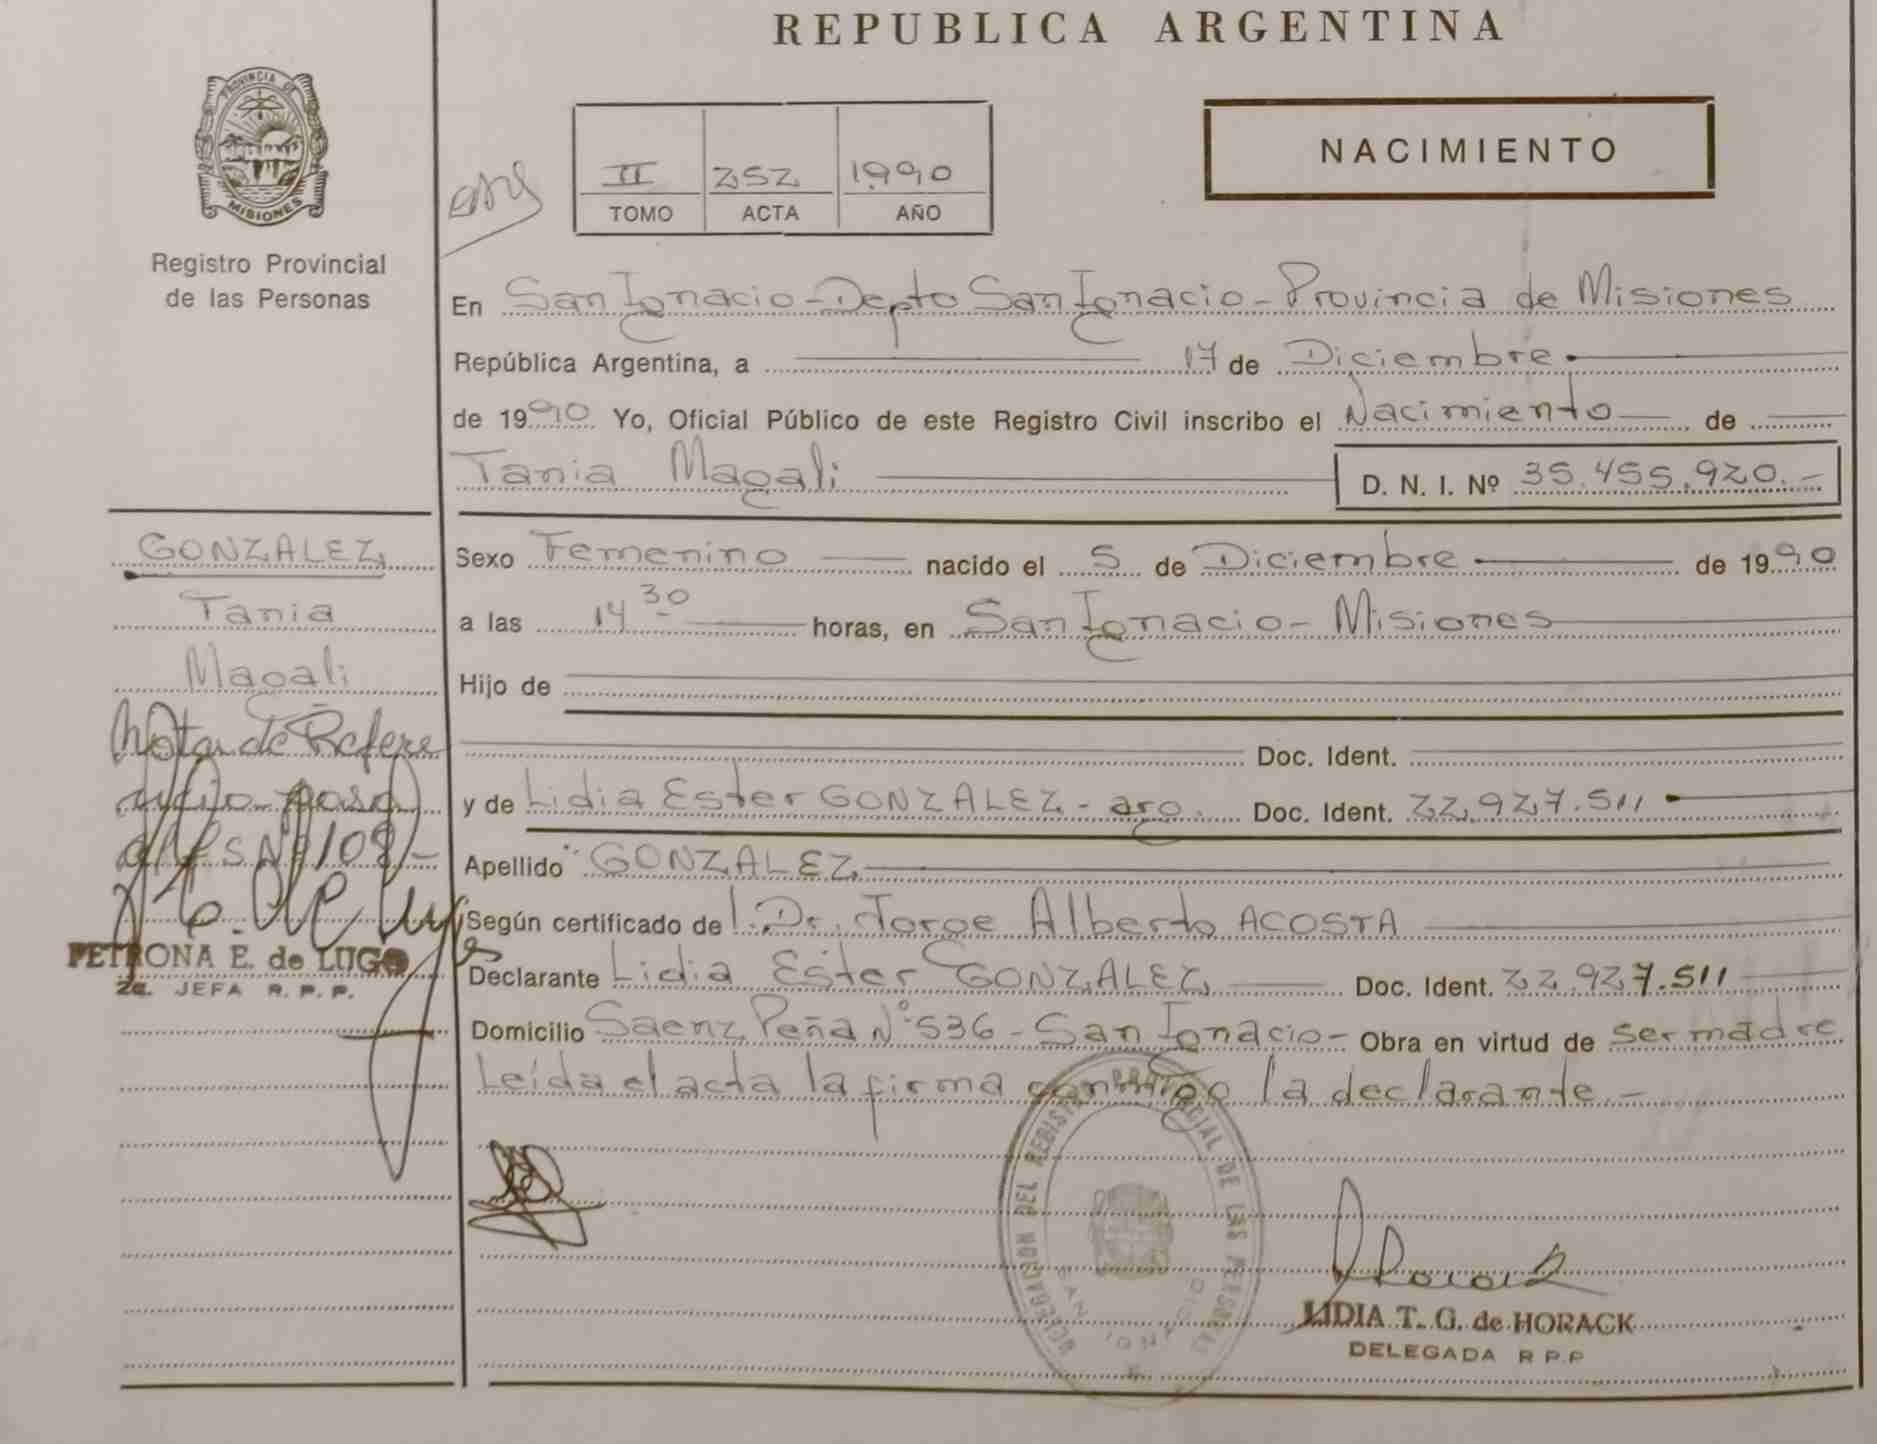 REPUBLICA ARGENTINA
PROVINCIA DE
MISIONES
Registro Provincial
de las Personas
II 252 1990
TOMO ACTA AÑO
NACIMIENTO
En San Ignacio - Depto San Ignacio - Provincia de Misiones
República Argentina, a 17 de Diciembre
de 1990 Yo, Oficial Público de este Registro Civil inscribo el Nacimiento de
Tania Magali D. N. I. Nº 35.455.920.-
GONZALEZ
Tania
Magali
Nota de Refere
Nº 108
PETRONA E. de LUGO
2a. JEFA R. P. P.
Sexo Femenino nacido el 5 de Diciembre de 1990
a las 14 30 horas, en San Ignacio - Misiones
Hijo de
Doc. Ident.
y de Lidia Ester GONZALEZ - arg. Doc. Ident. 22.927.511
Apellido GONZALEZ
Según certificado de l. Dr. Jorge Alberto ACOSTA
Declarante Lidia Ester GONZALEZ Doc. Ident. 22.927.511
Domicilio Saenz Peña Nº 536 - San Ignacio - Obra en virtud de ser madre
Leída el acta la firma conmigo la declarante.-
DELEGACION DEL REGISTRO PROVINCIAL DE LAS PERSONAS
SAN IGNACIO
LIDIA T. G. de HORACK
DELEGADA R P.P